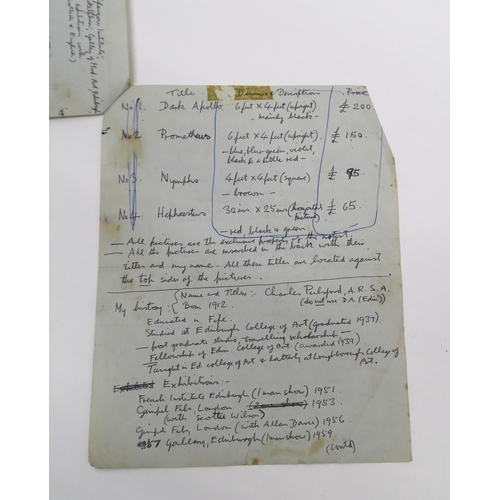 Title Dimns & Description Price
No 1. Dark Apollo 6 feet x 4 feet (upright) £ 200
- mainly black -
No 2 Prometheus 6 feet x 4 feet (upright) £ 150
- blue, blue-green, violet,
black & a little red -
No 3 Nymphs 4 feet x 4 feet (square) £ 95
- brown -
No 4 Hephaestus 30 ins x 25 ins (horizontal £ 65
picture)
- red, black & green
- All pictures are the exclusive property of the artist.
- All the pictures are inscribed on the back with their
titles and my name. All these titles are located against
the top sides of the pictures.
My history: Name and Titles:- Charles Pulsford, A.R.S.A.
(do not use D.A (Edin))
Born 1912.
Educated in Fife
Studied at Edinburgh College of Art (graduated 1937)
- post graduate studies, travelling scholarship -
Fellowship of Edin. College of Art. (awarded 1939)
Taught in Ed college of Art & latterly at Loughborough College of
Art.
Exhibitions:-
French Institute Edinburgh (1 man show) 1951
Gimpel Fils, London 1953
(with Scottie Wilson)
Gimpel Fils, London (with Allan Davie) 1956
'57 Gallery, Edinburgh (1 man show) 1959
(Contd)